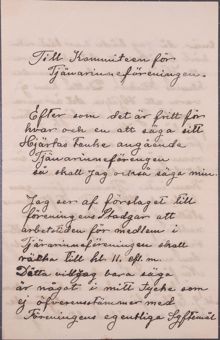 Till Kommiteen för
Tjänarinneföreningen.
Efter som det är fritt för
hvar och en att säga sitt
Hjärtas tanke angående
Tjänarinneförengen
så skall jag också säga min.
Jag ser af förslaget till
föreningens Stadgar att
arbetstiden för medlem i
Tjänarinneföreningen skall
räcka till kl. 11. eft m.
Detta vill jag bara säga
är något i mitt tycke som
ej öfverensstämmer med
Föreningens egentliga Syftemål